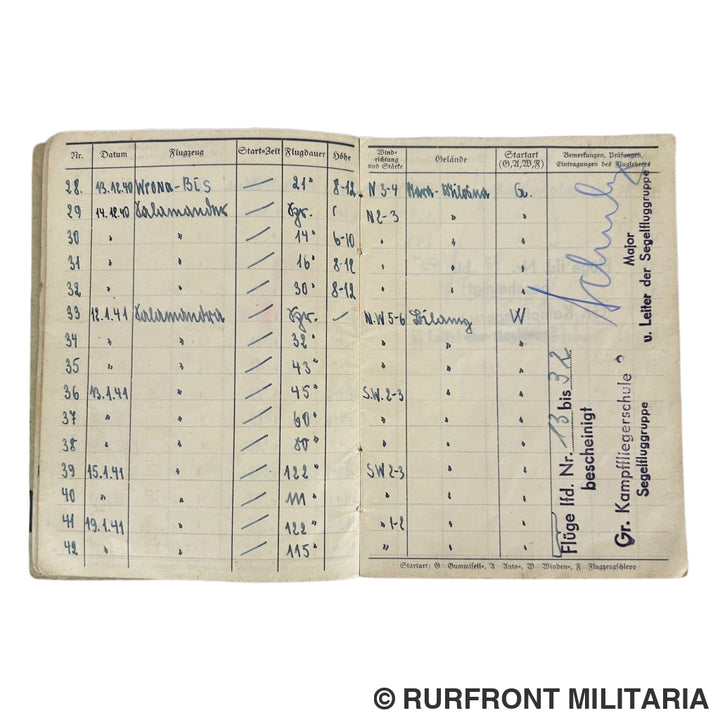 Nr. Datum Flugzeug Start-Zeit Flugdauer Höhe Wind-richtung und Stärke Gelände Startart (G,A,W,F) Bemerkungen, Prüfungen, Eintragungen des Fluglehrers
28. 13.12.40 Wrona-Bis / 21" 8-12 N 3-4 G.
29 14.12.40 Salamander / N 2-3 " "
30 " / 14" 6-10 " " "
31 " / 16" 8-12 " " "
32 " / 30" 8-12 " " "
33 12.1.41 Salamandra / / N.W 5-6 W
34 " / 32" " "
35 " / 43" " "
36 13.1.41 " / 45" S.W. 2-3 " "
37 " / 60" " "
38 " / 80" " "
39 15.1.41 " / 122" S.W 2-3 " "
40 " / 111" " "
41 19.1.41 " / 122" " 1-2 " "
42 " / 115" " " "
Flüge lfd. Nr. 13 bis 32
bescheinigt
Gr. Kampffliegerschule
Segelfluggruppe
Major
u. Leiter der Segelfluggruppe
Startart: G Gummiseil-, A Auto-, W Winden-, F Flugzeugschlepp
© RURFRONT MILITARIA